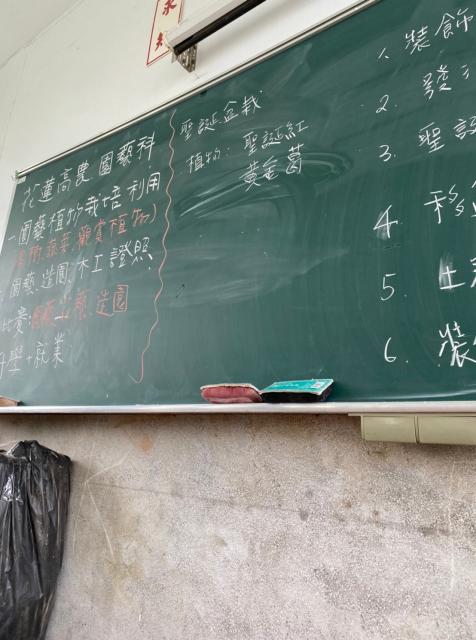 求
知
花蓮高農 園藝科
園藝植物栽培利用
蔬菜、觀賞植物)
園藝、造園、木工 證照
比賽: 造園
升學、就業
聖誕盆栽
植物: 聖誕紅
黃金葛
1. 裝飾
2. 發
3. 聖誕
4. 移
5. 土
6. 裝